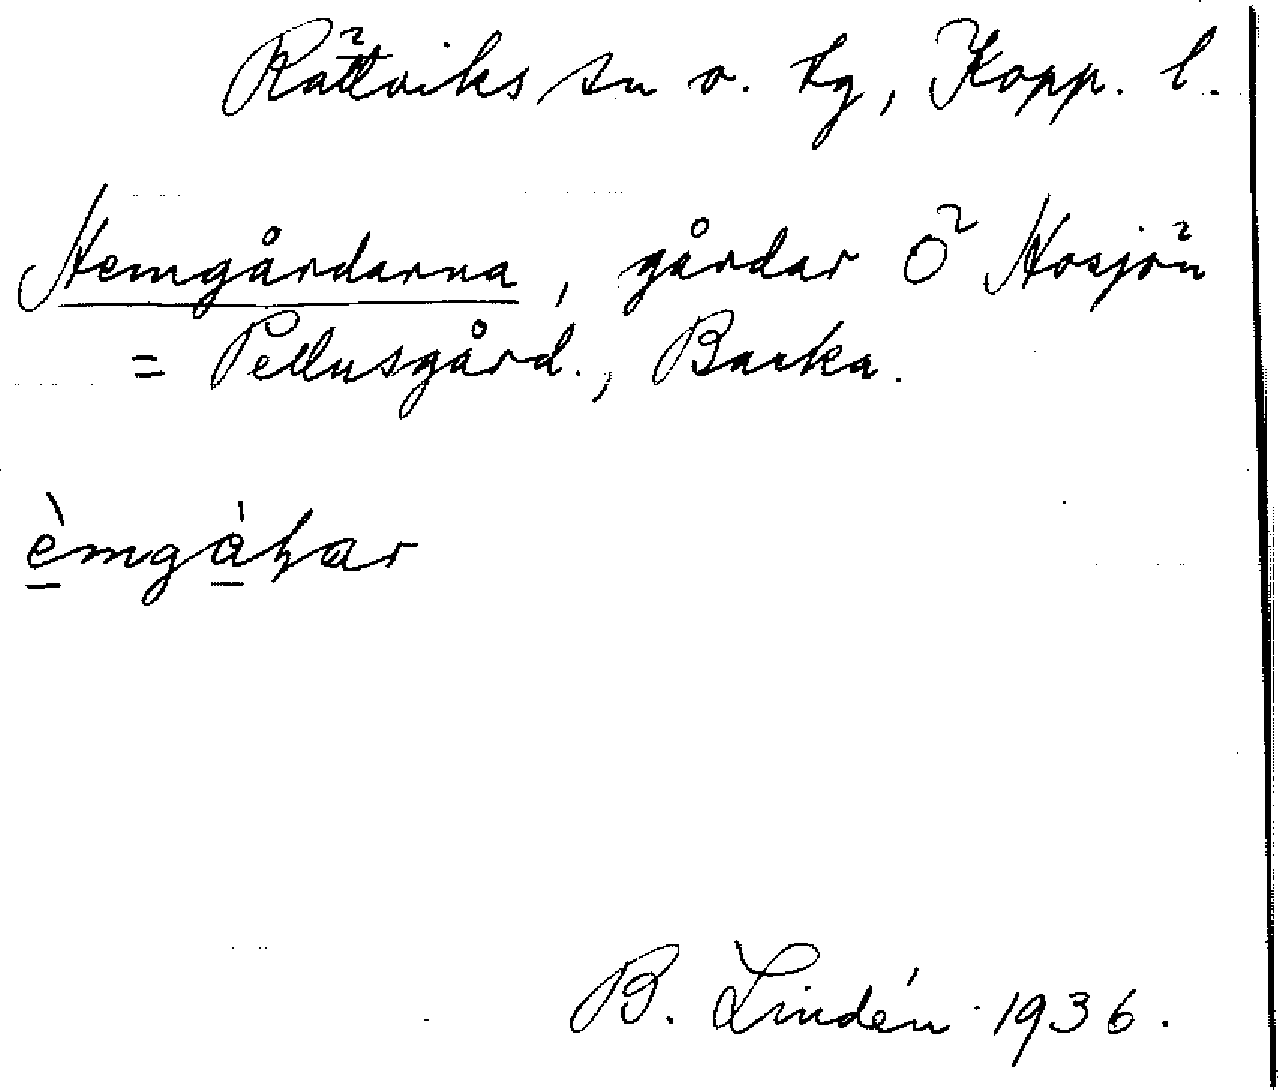 Rättviks sn o. tg, Kopp. l.
Hemgårdarna, gårdar Ö Hosjön
= Pellusgård., Backa.
èmgàɦar
B. Lindén 1936.